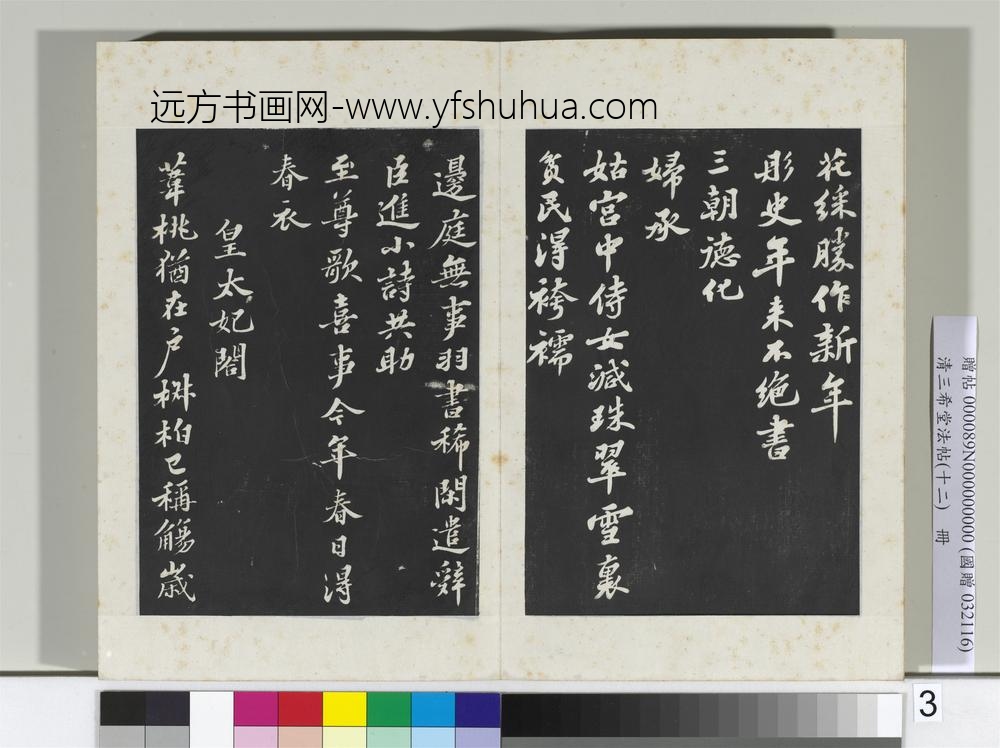 远方书画网-www.yfshuhua.com
花綵勝作新年
彤史年来不绝書
三朝德化
婦承
姑宫中侍女減珠翠雪裏
貧民淂袴襦
邊庭無事羽書稀閑遣辭
臣進小詩共助
至尊歌喜事今年春日淂
春衣
皇太妃閤
葦桃猶在户椒柏已稱觴歳
贈帖 000089N000000000 (國贈 032116)
清三希堂法帖(十二) 冊
3